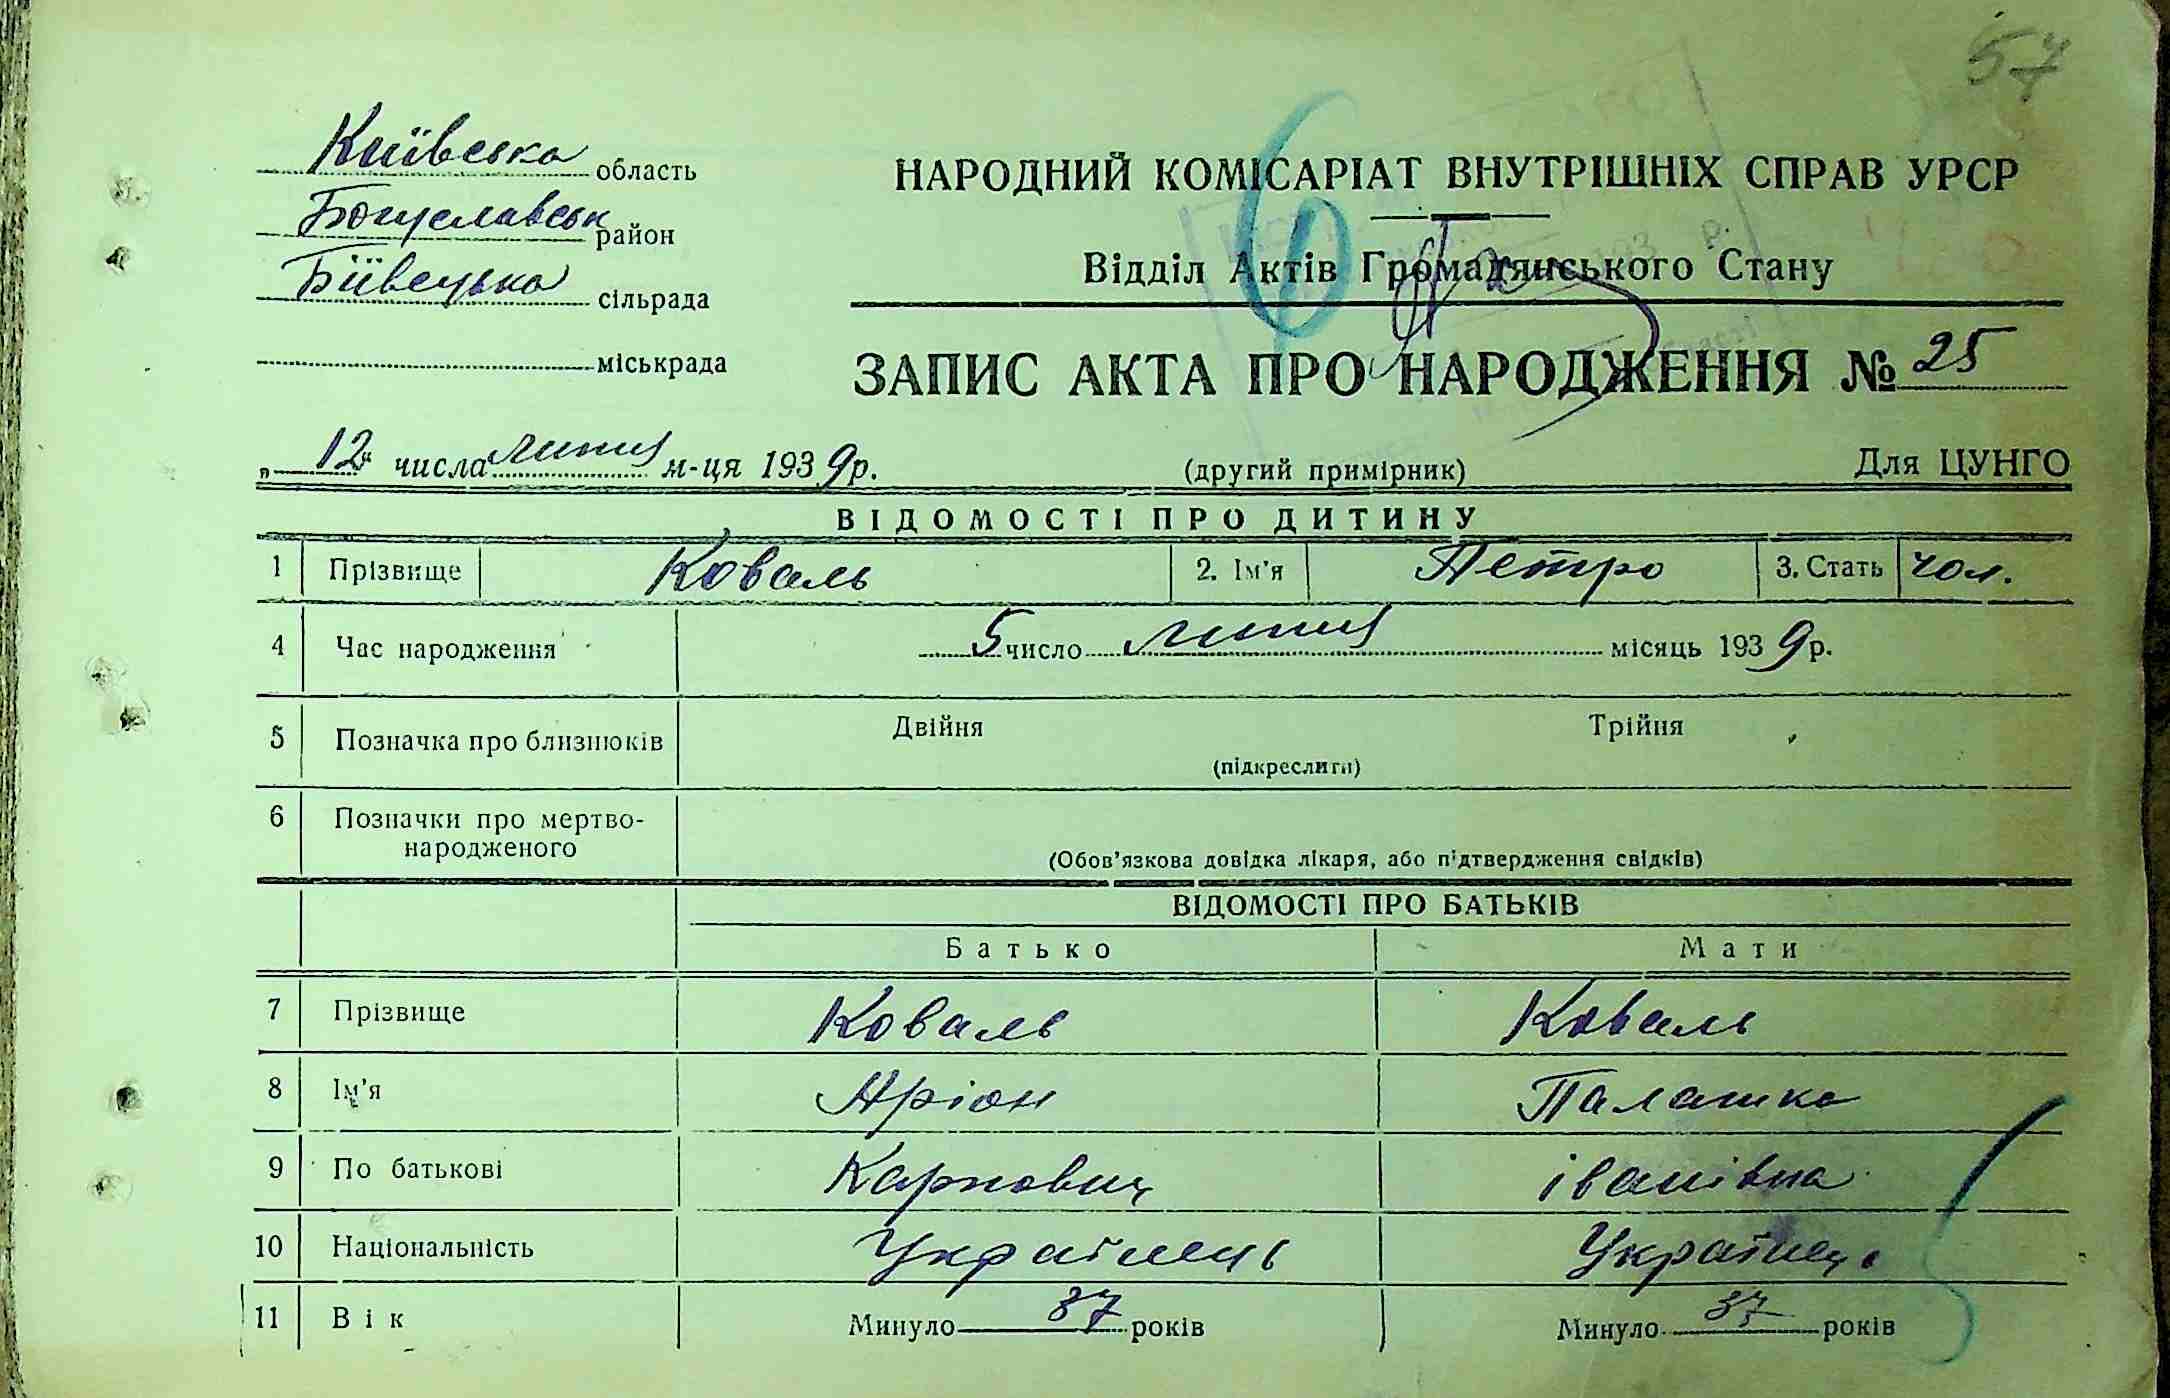 57
Київська область
НАРОДНИЙ КОМІСАРІАТ ВНУТРІШНІХ СПРАВ УРСР
Богуславськ район
6
Відділ Актів Громадянського Стану
Бієвецька сільрада
міськрада
ЗАПИС АКТА ПРО НАРОДЖЕННЯ № 25
„ 12 числа липня м-ця 1939 р.
(другий примірник)
Для ЦУНГО
ВІДОМОСТІ ПРО ДИТИНУ
1 Прізвище Коваль 2. Ім'я Петро 3. Стать чол.
4 Час народження 5 число липня місяць 1939 р.
5 Позначка про близнюків Двійня Трійня
(підкреслити)
6 Позначки про мертво-
народженого
(Обов'язкова довідка лікаря, або підтвердження свідків)
ВІДОМОСТІ ПРО БАТЬКІВ
Батько Мати
7 Прізвище Коваль Коваль
8 Ім'я Аріон Палашка
9 По батькові Карпович іванівна
10 Національність Українець Українець
11 Вік Минуло 37 років Минуло 37 років